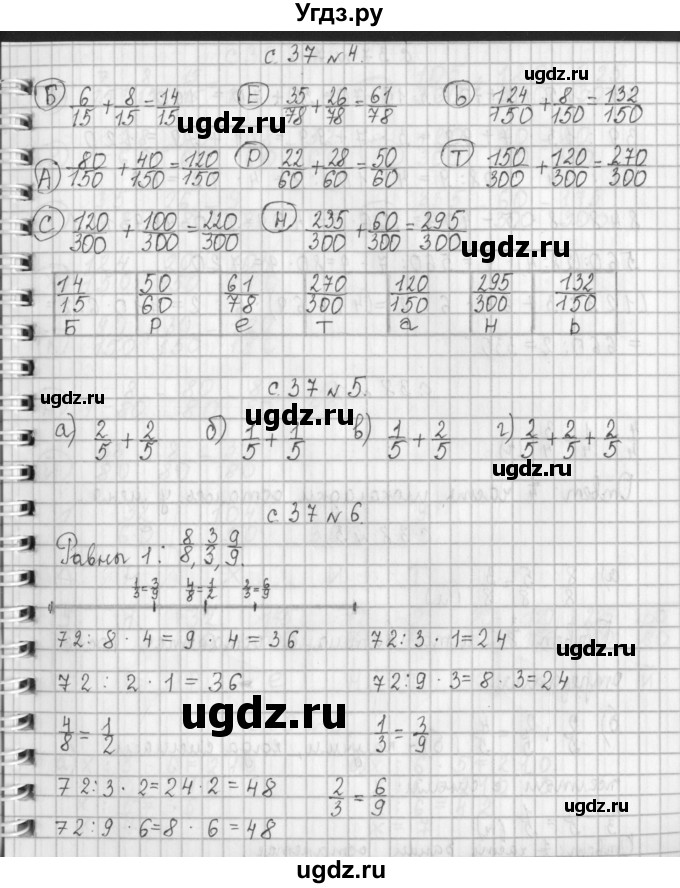 Угдз.ру
с. 37 № 4.
ugdz.ru
Б 6/15 + 8/15 = 14/15 Е 35/78 + 26/78 = 61/78 Ь 124/150 + 8/150 = 132/150
ugdz.ru
А 80/150 + 40/150 = 120/150 Р 22/60 + 28/60 = 50/60 Т 150/300 + 120/300 = 270/300
С 120/300 + 100/300 = 220/300 Н 235/300 + 60/300 = 295/300
ugdz.ru
14/15 50/60 61/78 270/300 120/150 295/300 132/150
Б Р е Т а Н Ь
с. 37 № 5.
ugdz.ru ugdz.ru
а) 2/5 + 2/5 б) 1/5 + 1/5 в) 1/5 + 2/5 г) 2/5 + 2/5 + 2/5
ugdz.ru
с. 37 № 6.
Равны 1: 8/8, 3/3, 9/9.
1/3 = 3/9 4/8 = 1/2 2/3 = 6/9
72 : 8 · 4 = 9 · 4 = 36 72 : 3 · 1 = 24
ugdz.ru
72 : 2 · 1 = 36 72 : 9 · 3 = 8 · 3 = 24
ugdz.ru
4/8 = 1/2 1/3 = 3/9
72 : 3 · 2 = 24 · 2 = 48 2/3 = 6/9
ugdz.ru
72 : 9 · 6 = 8 · 6 = 48
ugdz.ru